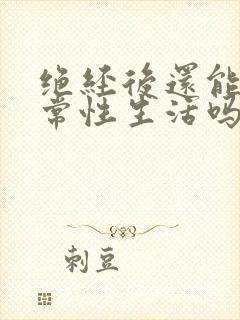 绝経後還能
常性生活吗
刺豆